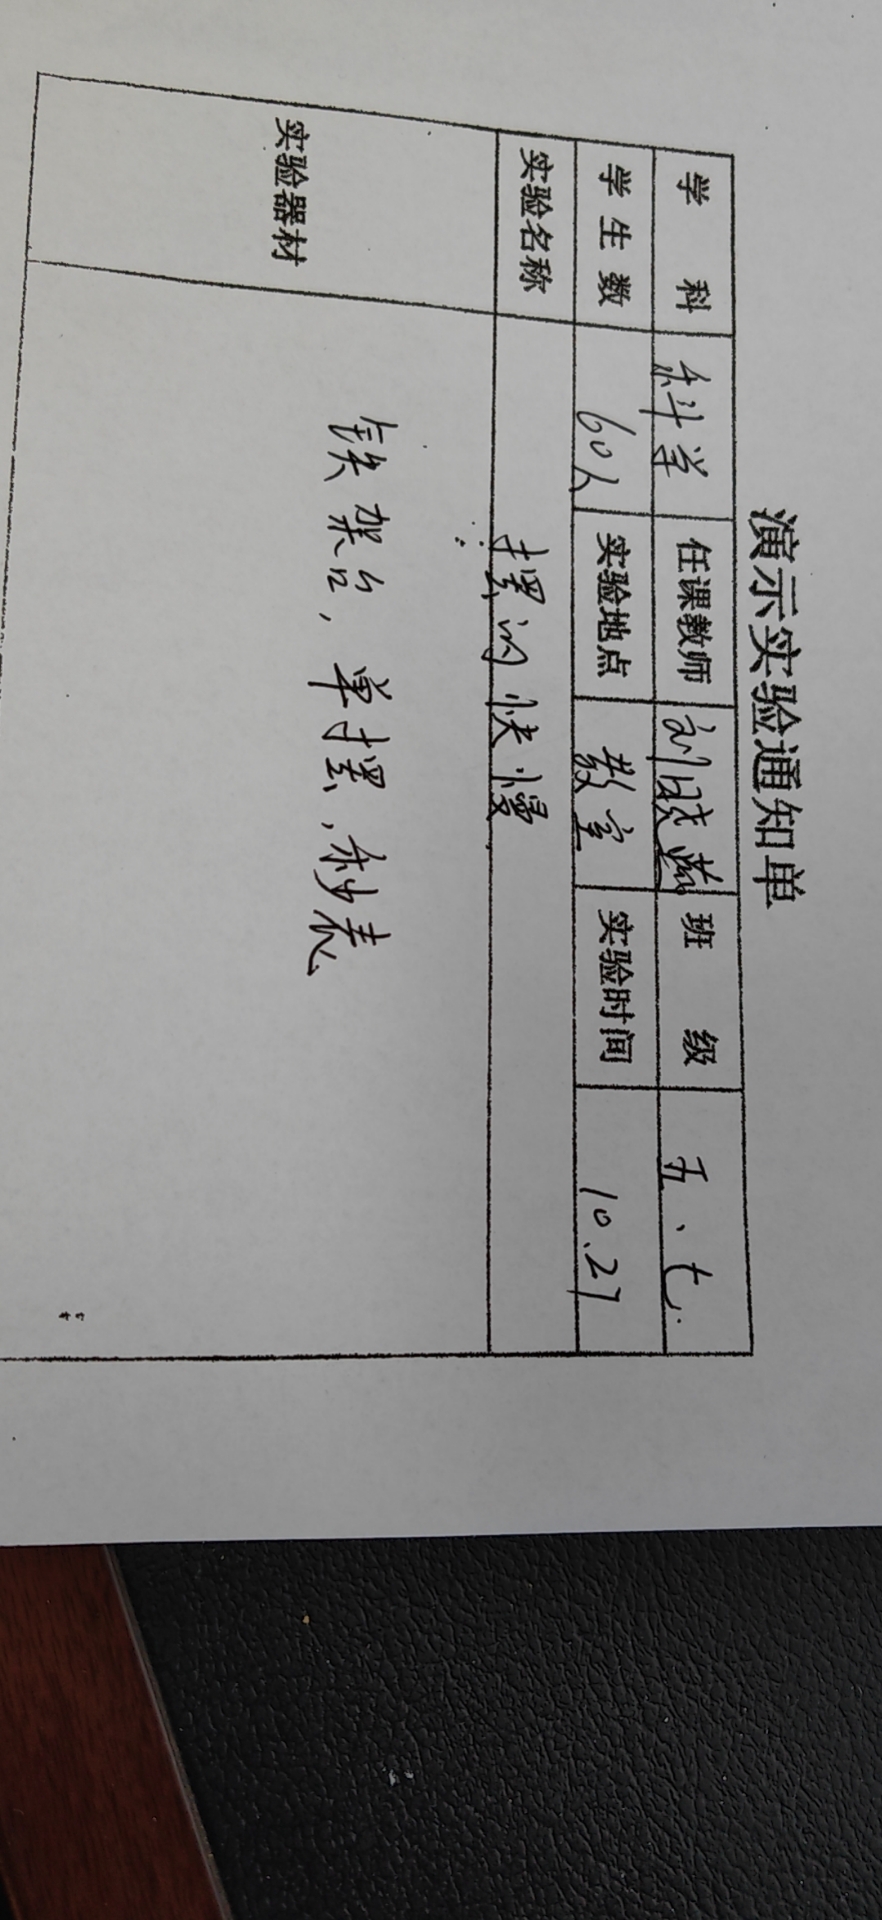 演示实验通知单
学 科 科学 任课教师 刘晓燕 班 级 五、七.
学生数 60人 实验地点 教室 实验时间 10.27
实验名称 摆的快慢
实验器材 铁架台，单摆，秒表、